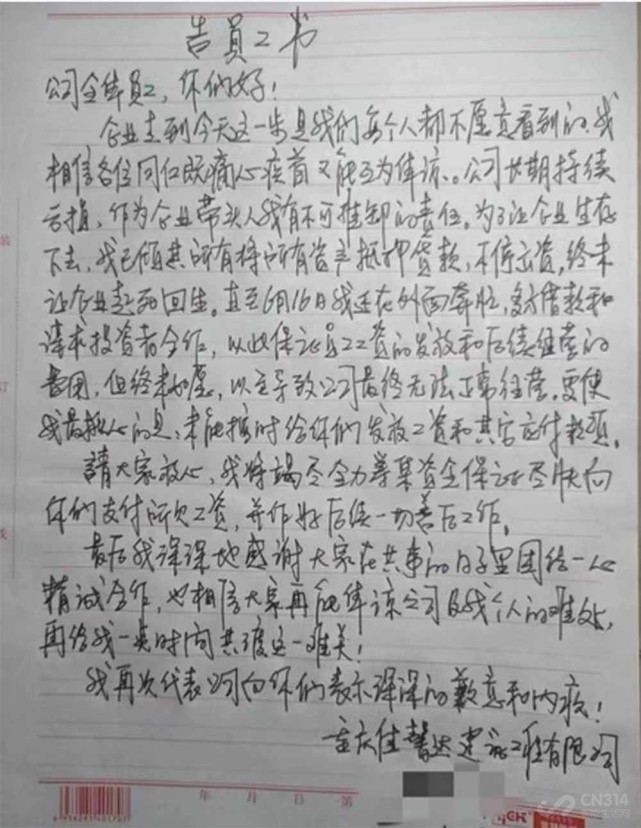 告员工书
公司全体员工，你们好！
企业走到今天这一步是我们每个人都不愿意看到的，我
相信各位同仁既痛心疾首又能互为体谅。公司长期持续
亏损，作为企业带头人我有不可推卸的责任。为了让企业生存
下去，我已倾其所有将所有资产抵押贷款，不停出资，终未
让企业起死回生。直至6月16日我还在外面奔忙，多方借款和
请求投资者合作，以此保证员工工资的发放和后续经营的
意图，但终未如愿，以至导致公司最终无法正常经营。更使
我最揪心的是，未能按时给你们发放工资和其它应付款项。
請大家放心，我将竭尽全力筹集资金保证尽快向
你们支付所欠工资，并作好后续一切善后工作。
最后我深深地感谢大家在共事的日子里团结一心
精诚合作，也相信大家再能体谅公司及我个人的难处，
再给我一点时间共渡这一难关！
我再次代表公司向你们表示深深的歉意和内疚！
重庆佳馨达建设工程有限公司
年 月 日 第
6956281401701
CN314
装
订
线